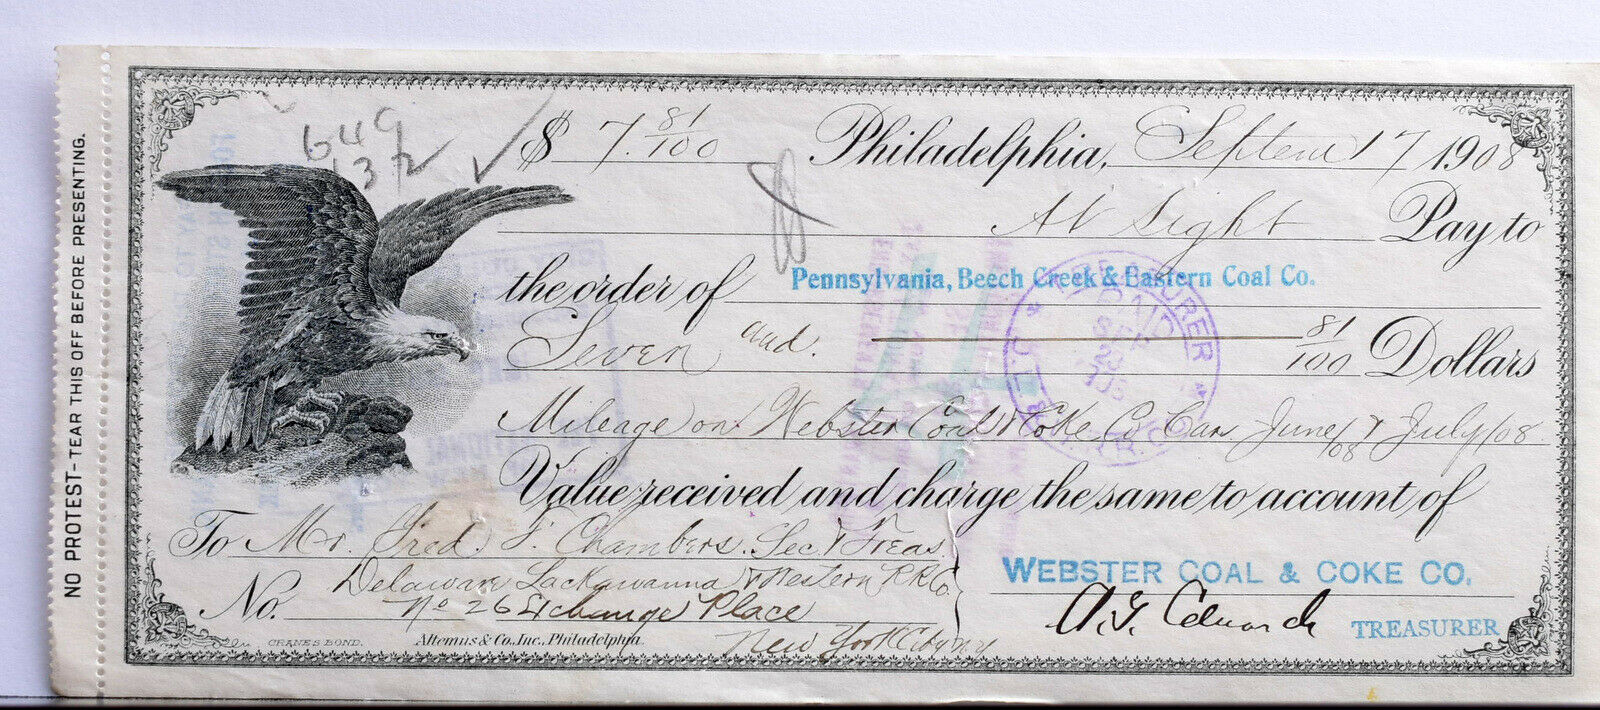 NO PROTEST-TEAR THIS OFF BEFORE PRESENTING.
649
137
$ 7. 81/100 Philadelphia, Septem 17 1908
At Sight Pay to
the order of Pennsylvania, Beech Creek & Eastern Coal Co.
Seven and 81/100 Dollars
Mileage on Webster Coal & Coke Co Car June/08 & July/08
Value received and charge the same to account of
To Mr. Fred. F. Chambers. Sec & Treas.
Delaware Lackawanna & Western R.R. Co
No. No 26 Exchange Place
New York City NY
WEBSTER COAL & COKE CO.
TREASURER
CRANE'S BOND.
Altemus & Co. Inc., Philadelphia.
PAID
SEP